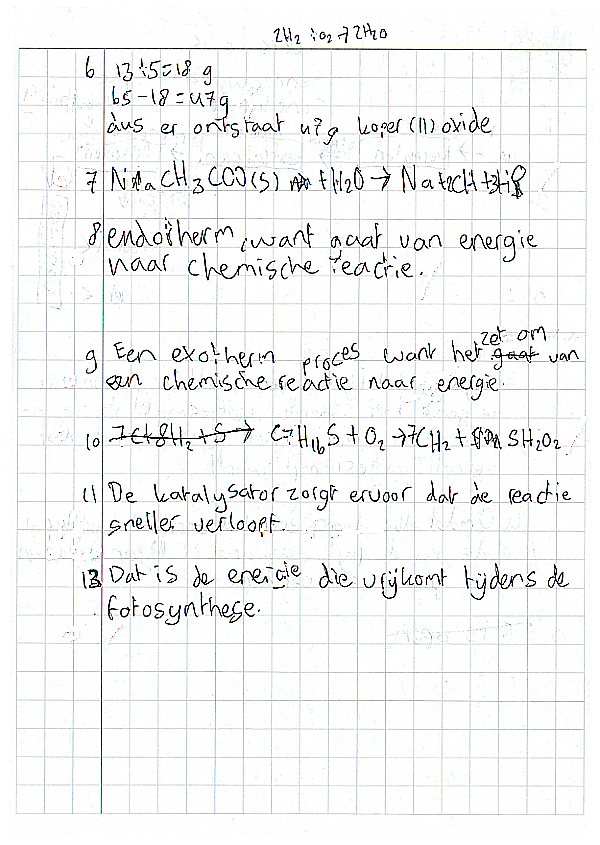 2H2 + O2 → 2H2O
6 13+5=18 g
65-18=47g
dus er ontstaat 47g koper(II)oxide
7 NaCH3COO(s) +H2O → Na+
8 endotherm, want gaat van energie
naar chemische reactie.
zet om
9 Een exotherm proces want het gaat van
een chemische reactie naar energie.
10 7C+8H2+S→ C7H16S + O2 →7CH2 + SH2O2
11 De katalysator zorgt ervoor dat de reactie
sneller verloopt.
13 Dat is de energie die vrijkomt tijdens de
fotosynthese.